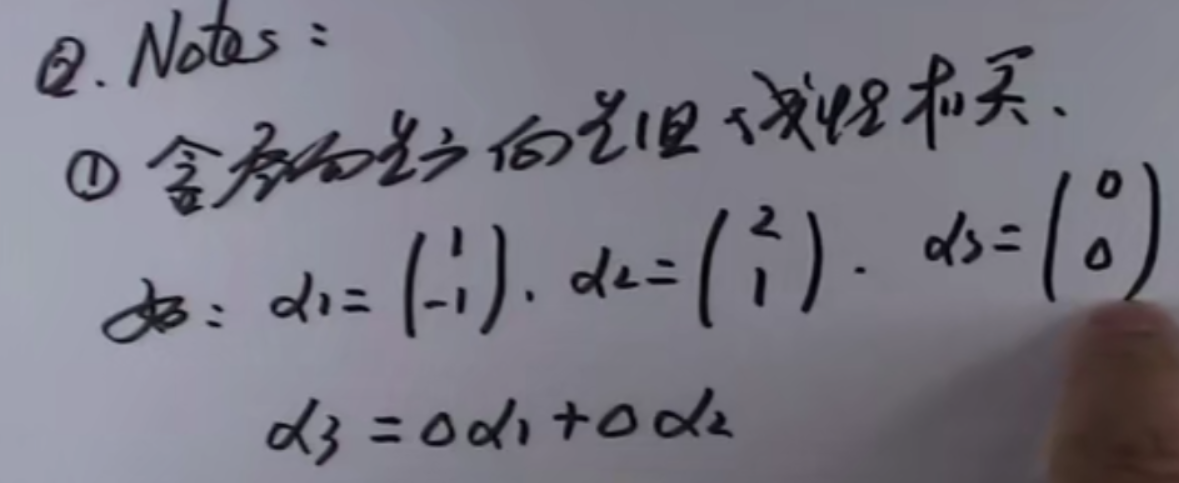 ②. Notes:
① 含零向量之向量组 线性相关.
如: α1=(1 -1). α2=(2 1). α3=(0 0)
α3=0α1+0α2